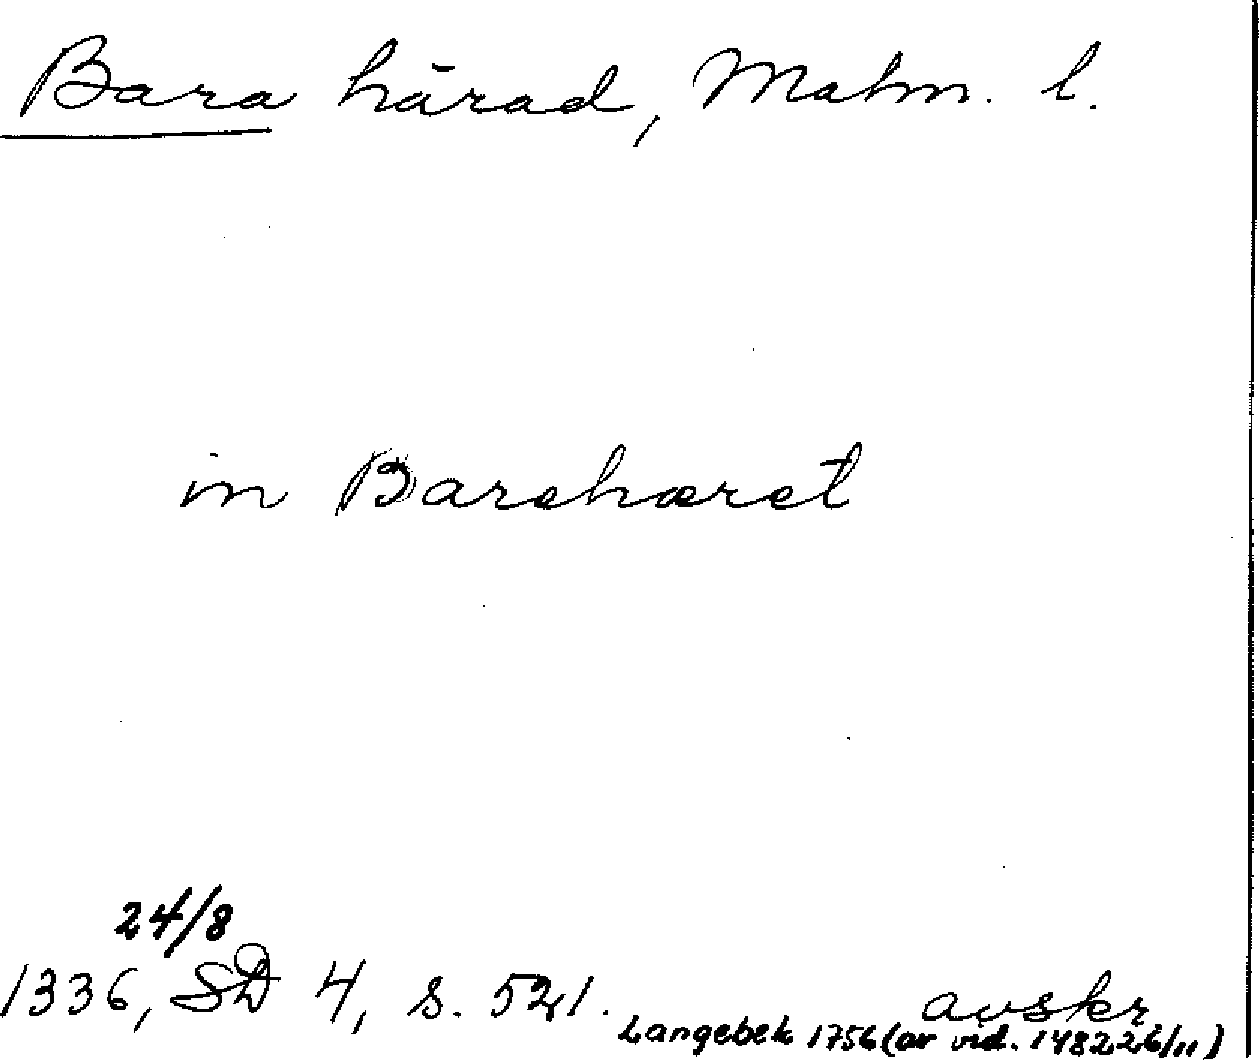 Bara härad, Malm. l.
in Barehæret
24/8
1336, SD 4, s. 521.
avskr
Langebek 1756 (av vid. 1482 26/11)